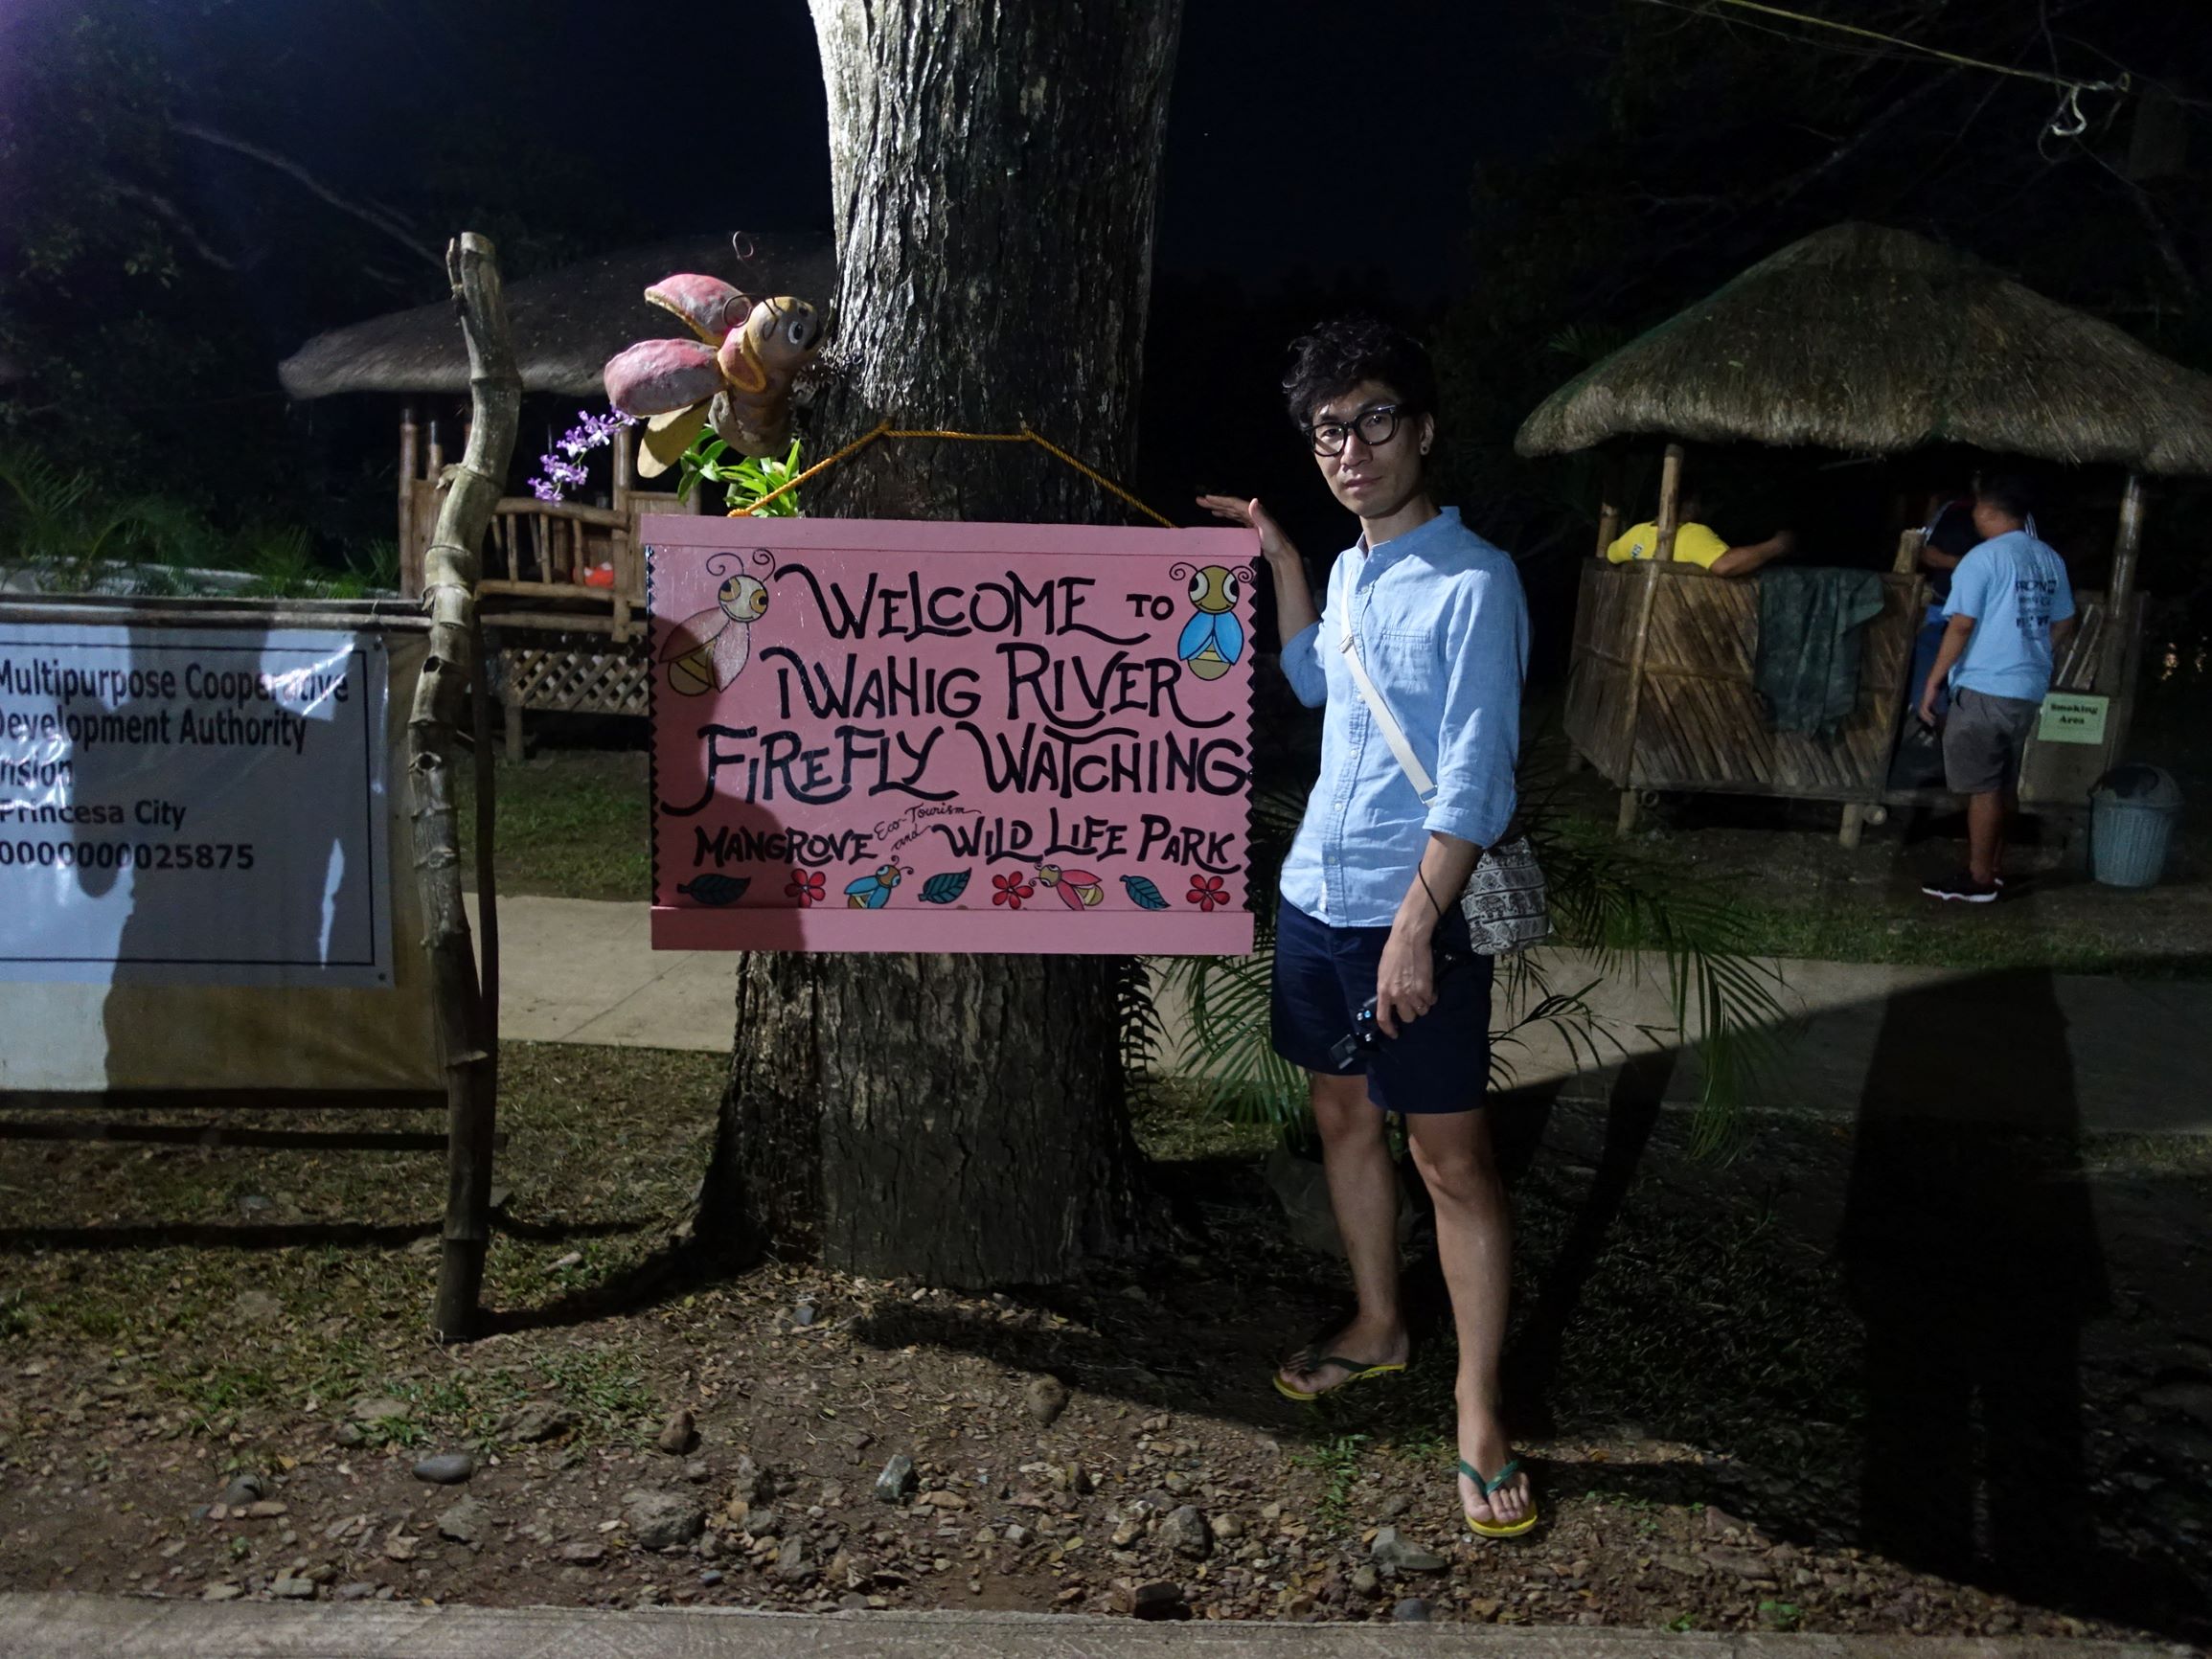 Multipurpose Cooperative
Development Authority
Princesa City
0000000025875
WELCOME TO
IWAHIG RIVER
FIREFLY WATCHING
MANGROVE Eco-Tourism and WILD LIFE PARK
Smoking
Area